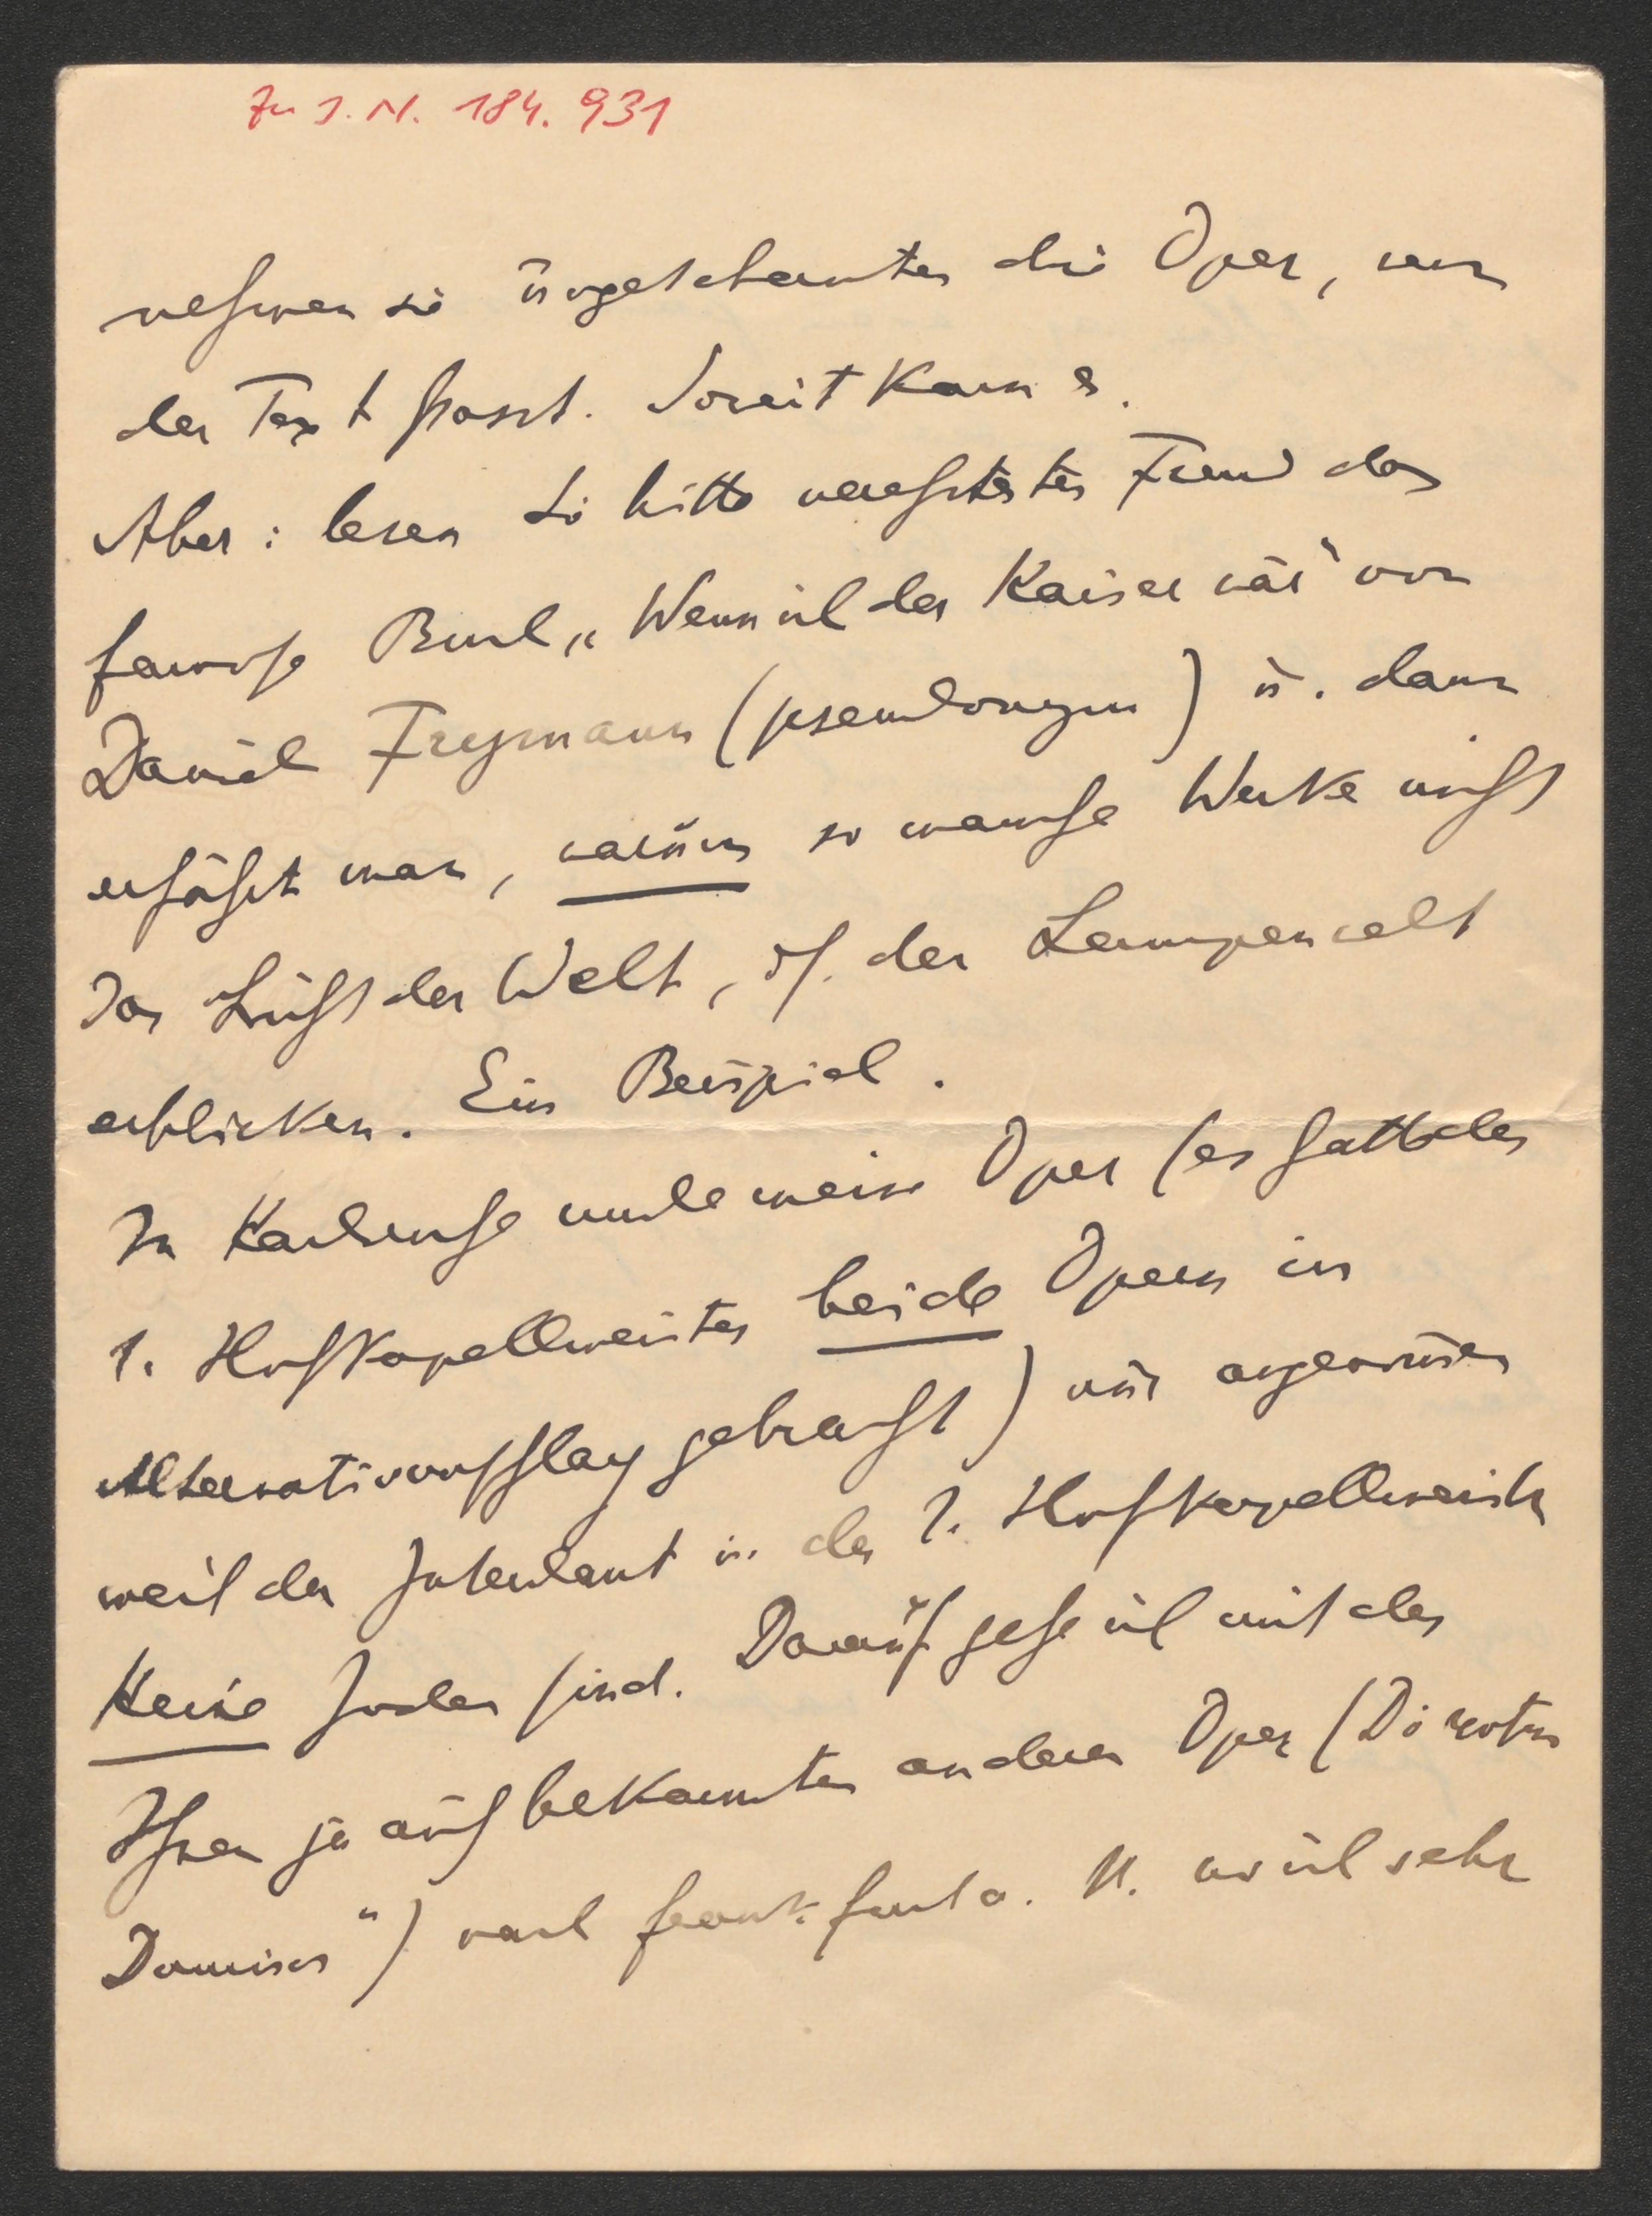 Zu I.N. 184.931
nehmen sie ungeschauter die Oper, wenn
der Text passt. Soweit kam es.
Aber: lesen Sie bitte verehrtester Freund das
famose Buch „Wenn ich der Kaiser wär" von
Daniel Frymann (pseudonym) u. dann
erfährt man, warum so manche Werke nicht
das Licht der Welt, rsp. der Lampenwelt
erblicken. Ein Beispiel.
In Karlsruhe wurde meine Oper (es hatte der
1. Hofkapellmeister beide Opern in
Alternativvorschlag gebracht) nur angenommen
weil der Intendant u. der 1. Hofkapellmeister
keine Juden sind. Darauf gehe ich mit der
Ihnen ja auch bekannten anderen Oper (Die roten
Dominos") nach Frankfurt a. M. wo ich sehr